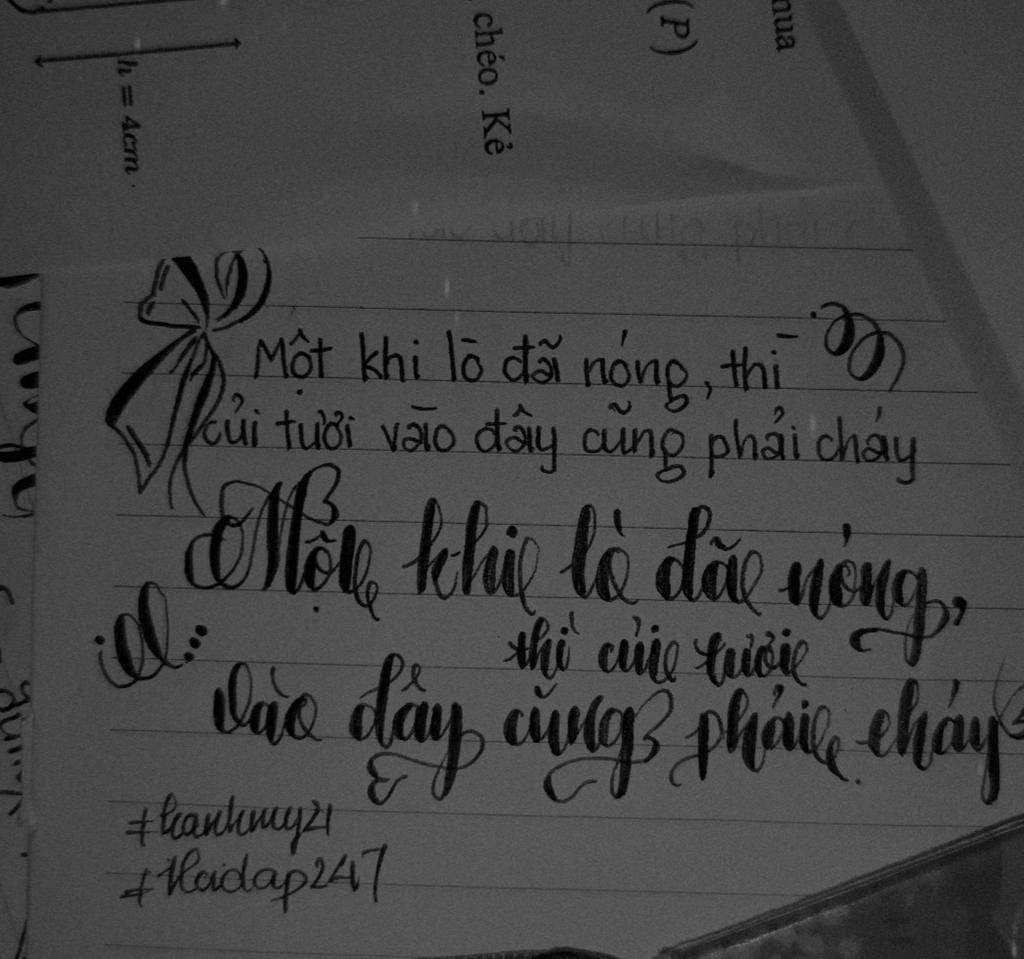 h = 4cm.
chéo. Kẻ
(P)
Một khi lò đã nóng, thì
củi tươi vào đây cũng phải cháy
Một khi lò đã nóng,
thì củi tươi
vào đây cũng phải cháy
#hoidap247